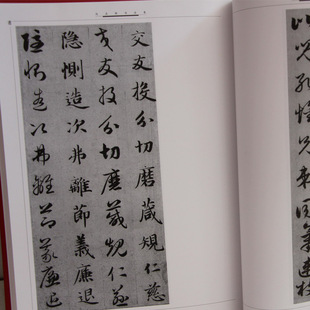 比兒孔懷兄弟同氣連枝
交友投分切磨箴規仁慈
交友投分切磨箴規仁慈
隱惻造次弗離節義廉退
隱惻造次弗離節義廉退